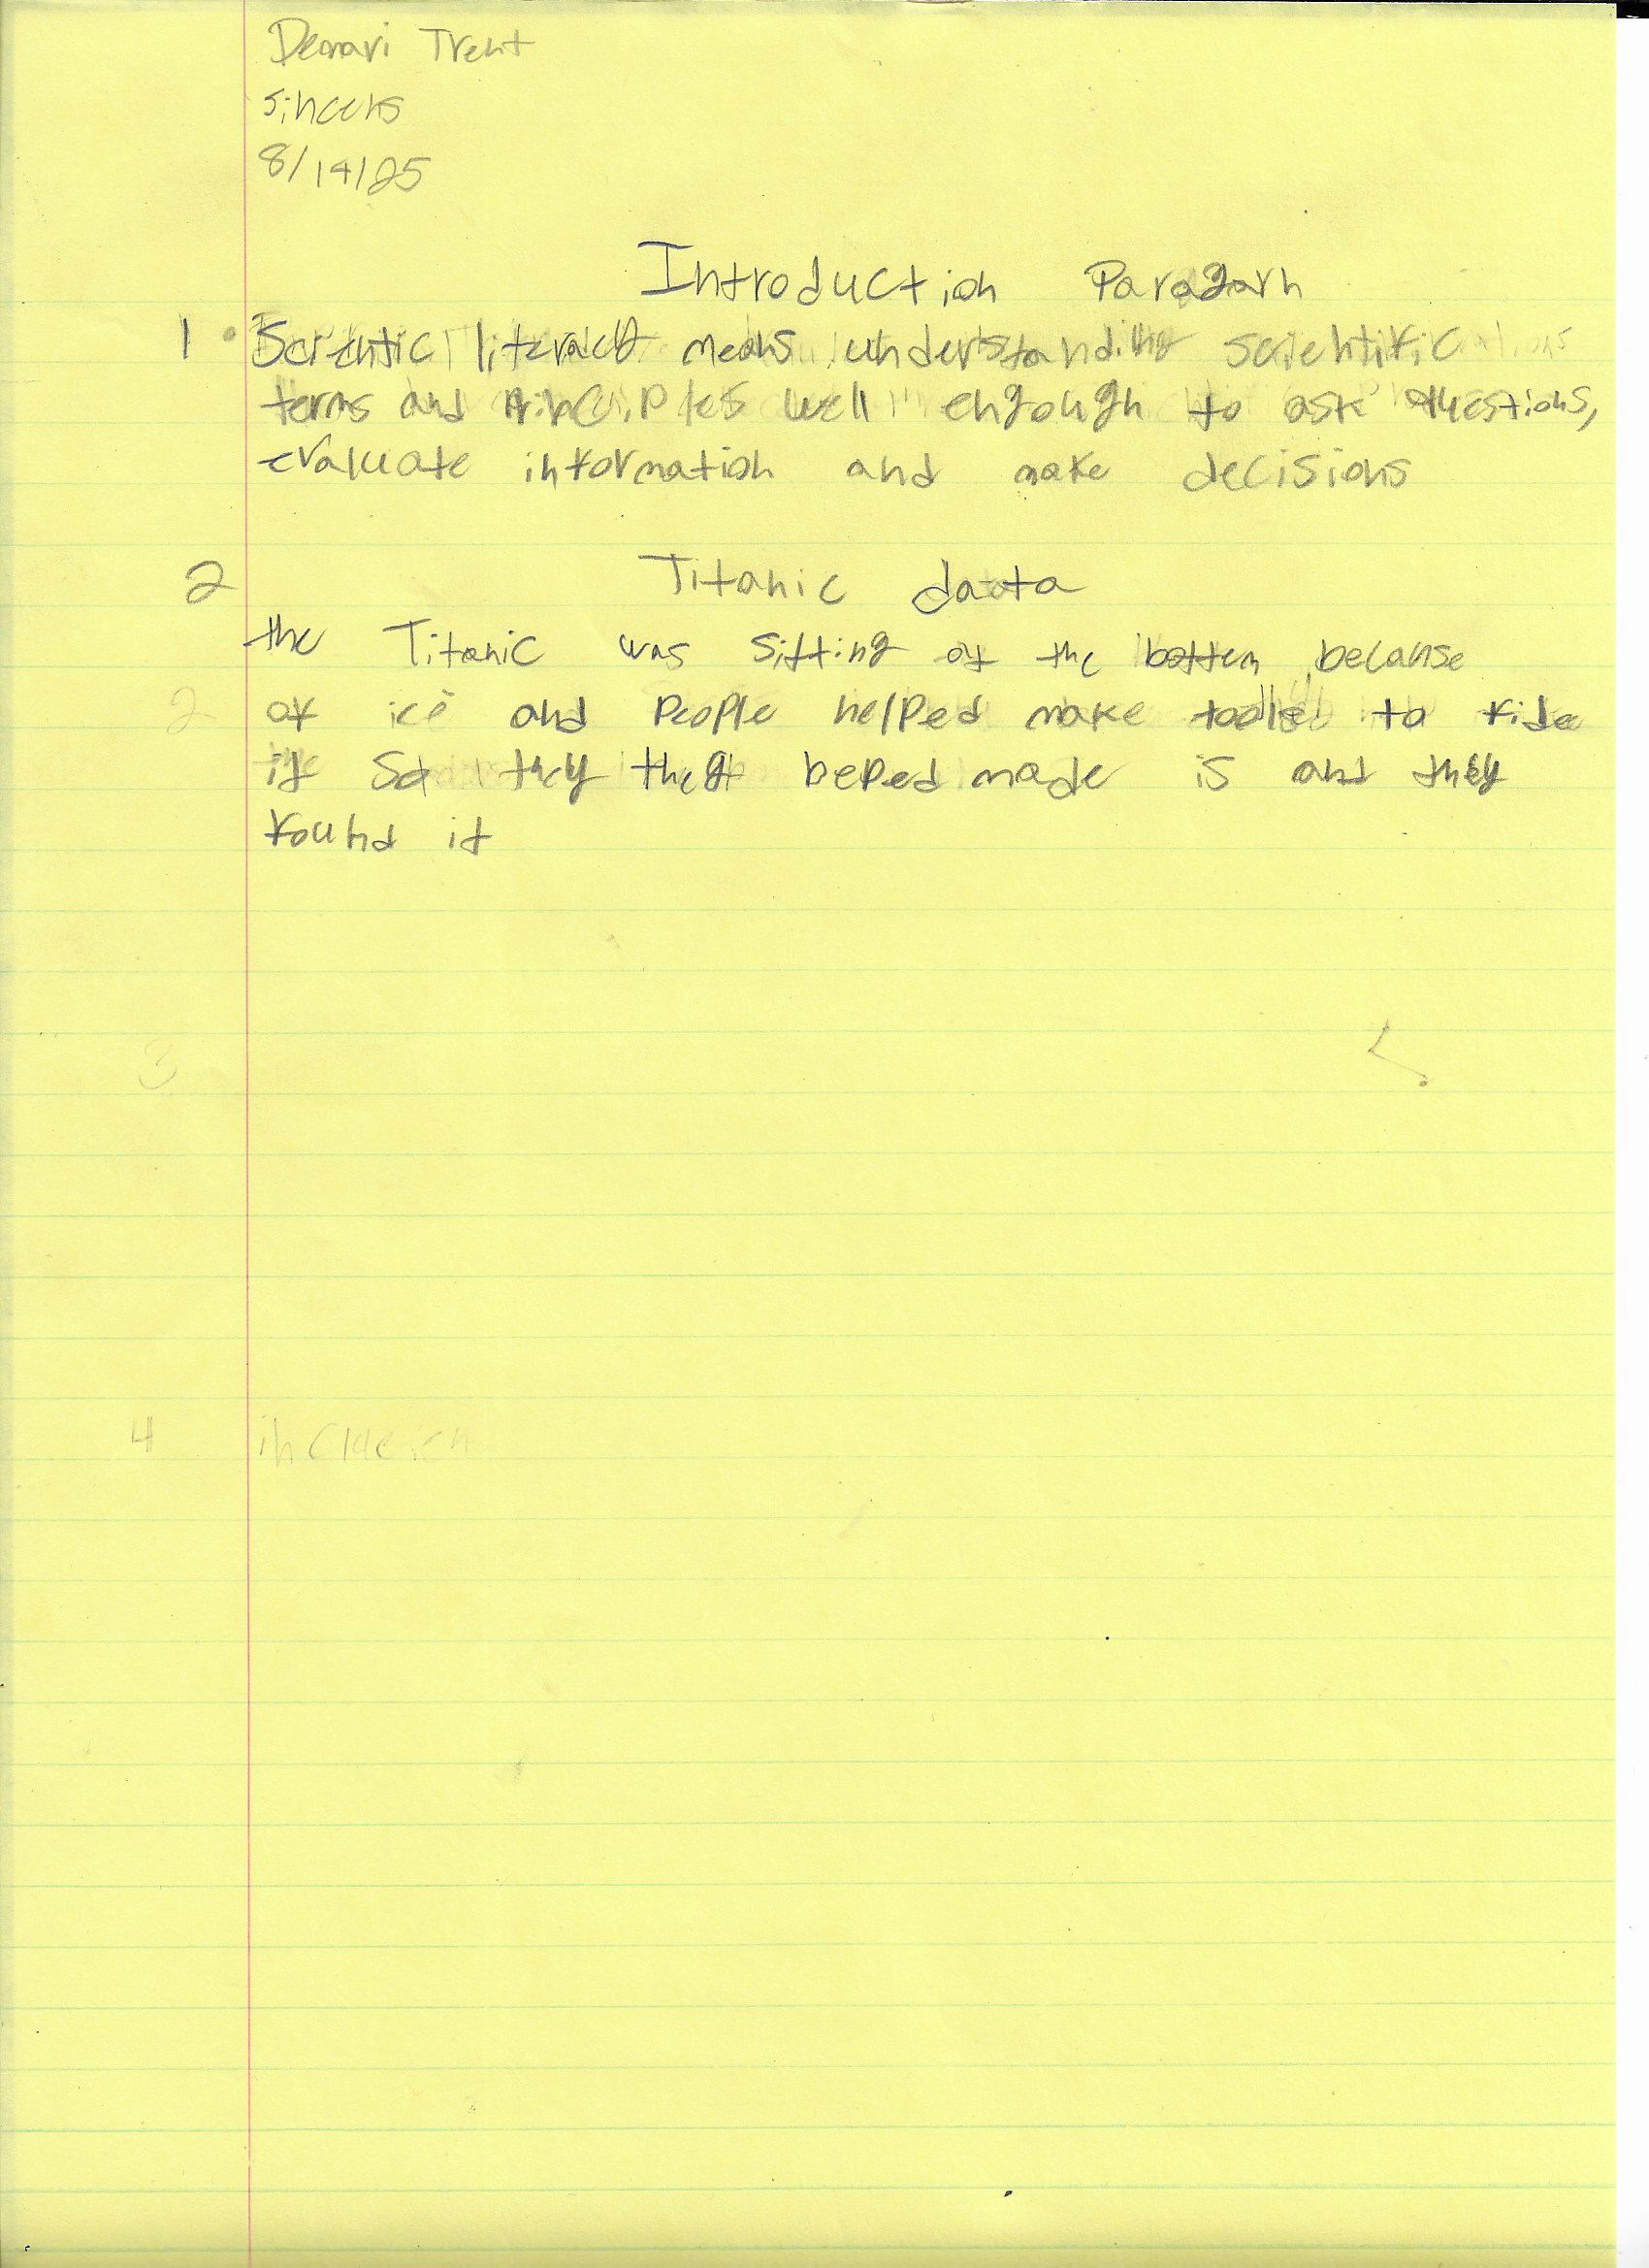 Demari Trent
8/14/25
Introduction Paragarh
1 Scientic literacy means understanding scientific
terms and well engough to ask questions,
evaluate information and make decisions
2 Titanic data
the Titanic was sitting at the bottem because
of ice and People helped make to
it they made is and they
found it
3
4